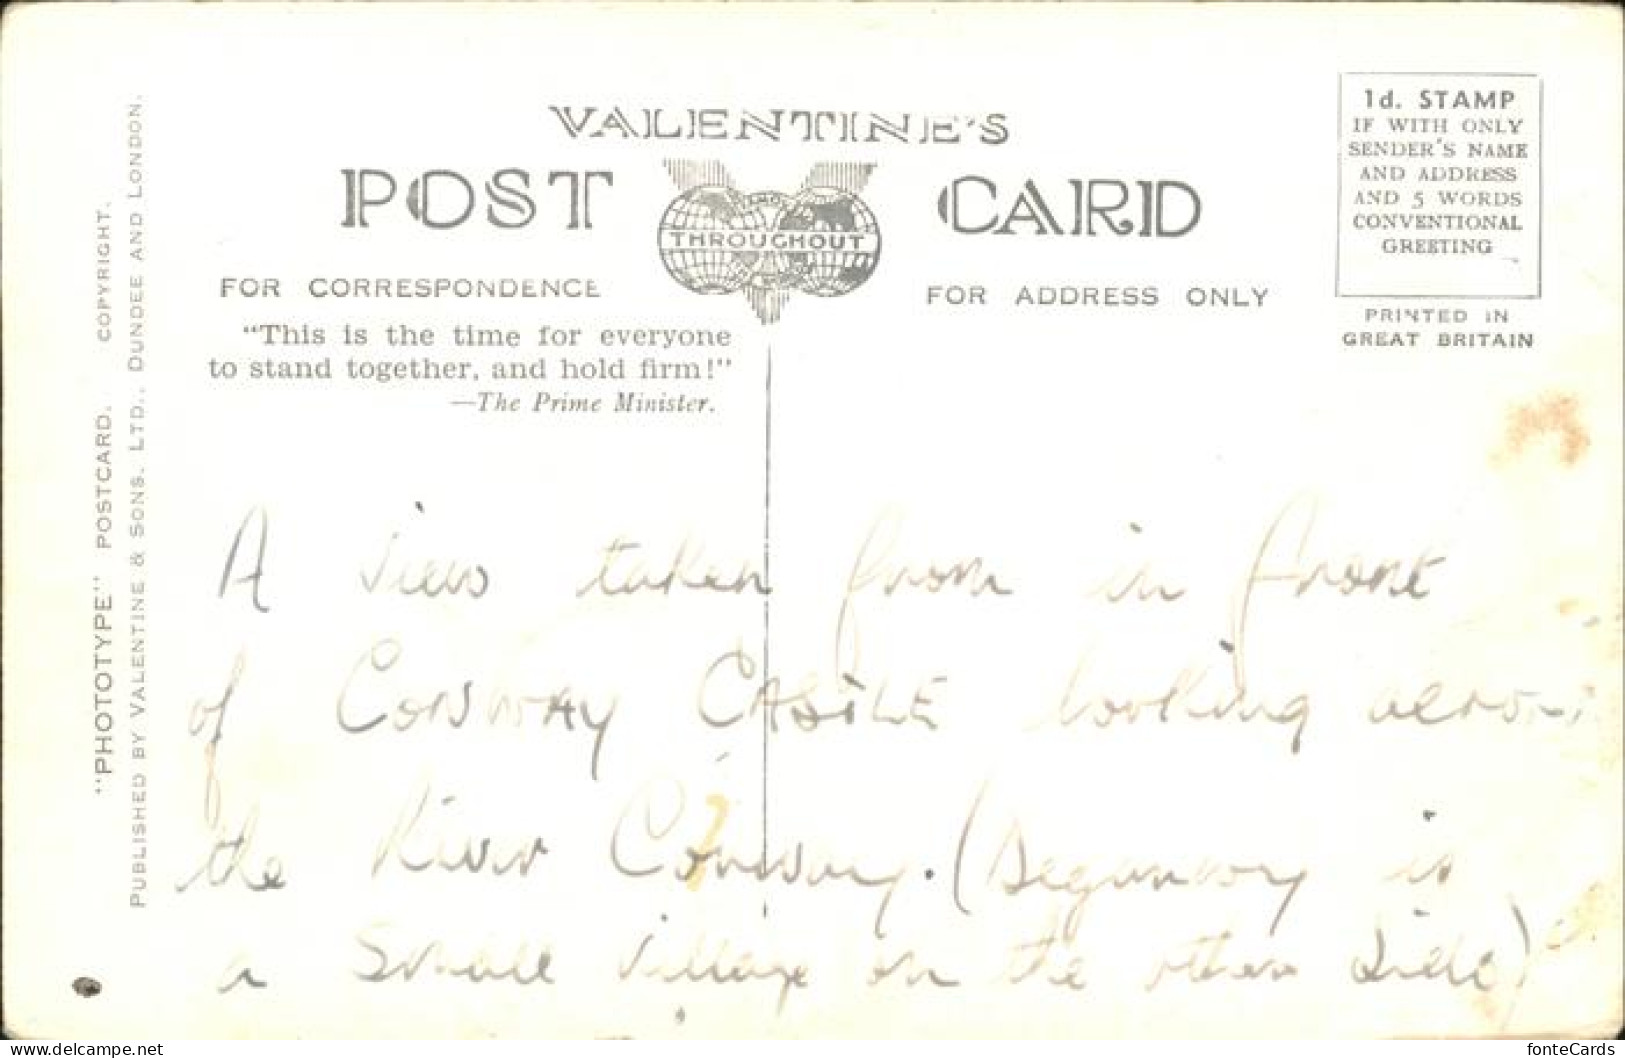 VALENTINE'S
POST CARD
THROUGHOUT
FOR CORRESPONDENCE
FOR ADDRESS ONLY
"This is the time for everyone
to stand together, and hold firm!"
—The Prime Minister.
1d. STAMP
IF WITH ONLY
SENDER'S NAME
AND ADDRESS
AND 5 WORDS
CONVENTIONAL
GREETING
PRINTED IN
GREAT BRITAIN
"PHOTOTYPE" POSTCARD. COPYRIGHT.
PUBLISHED BY VALENTINE & SONS. LTD., DUNDEE AND LONDON.
A view taken from in front
of CONWAY CASTLE looking across
the River Conway. (Deganwy is
a small village on the other side)
delcampe.net
fonteCards